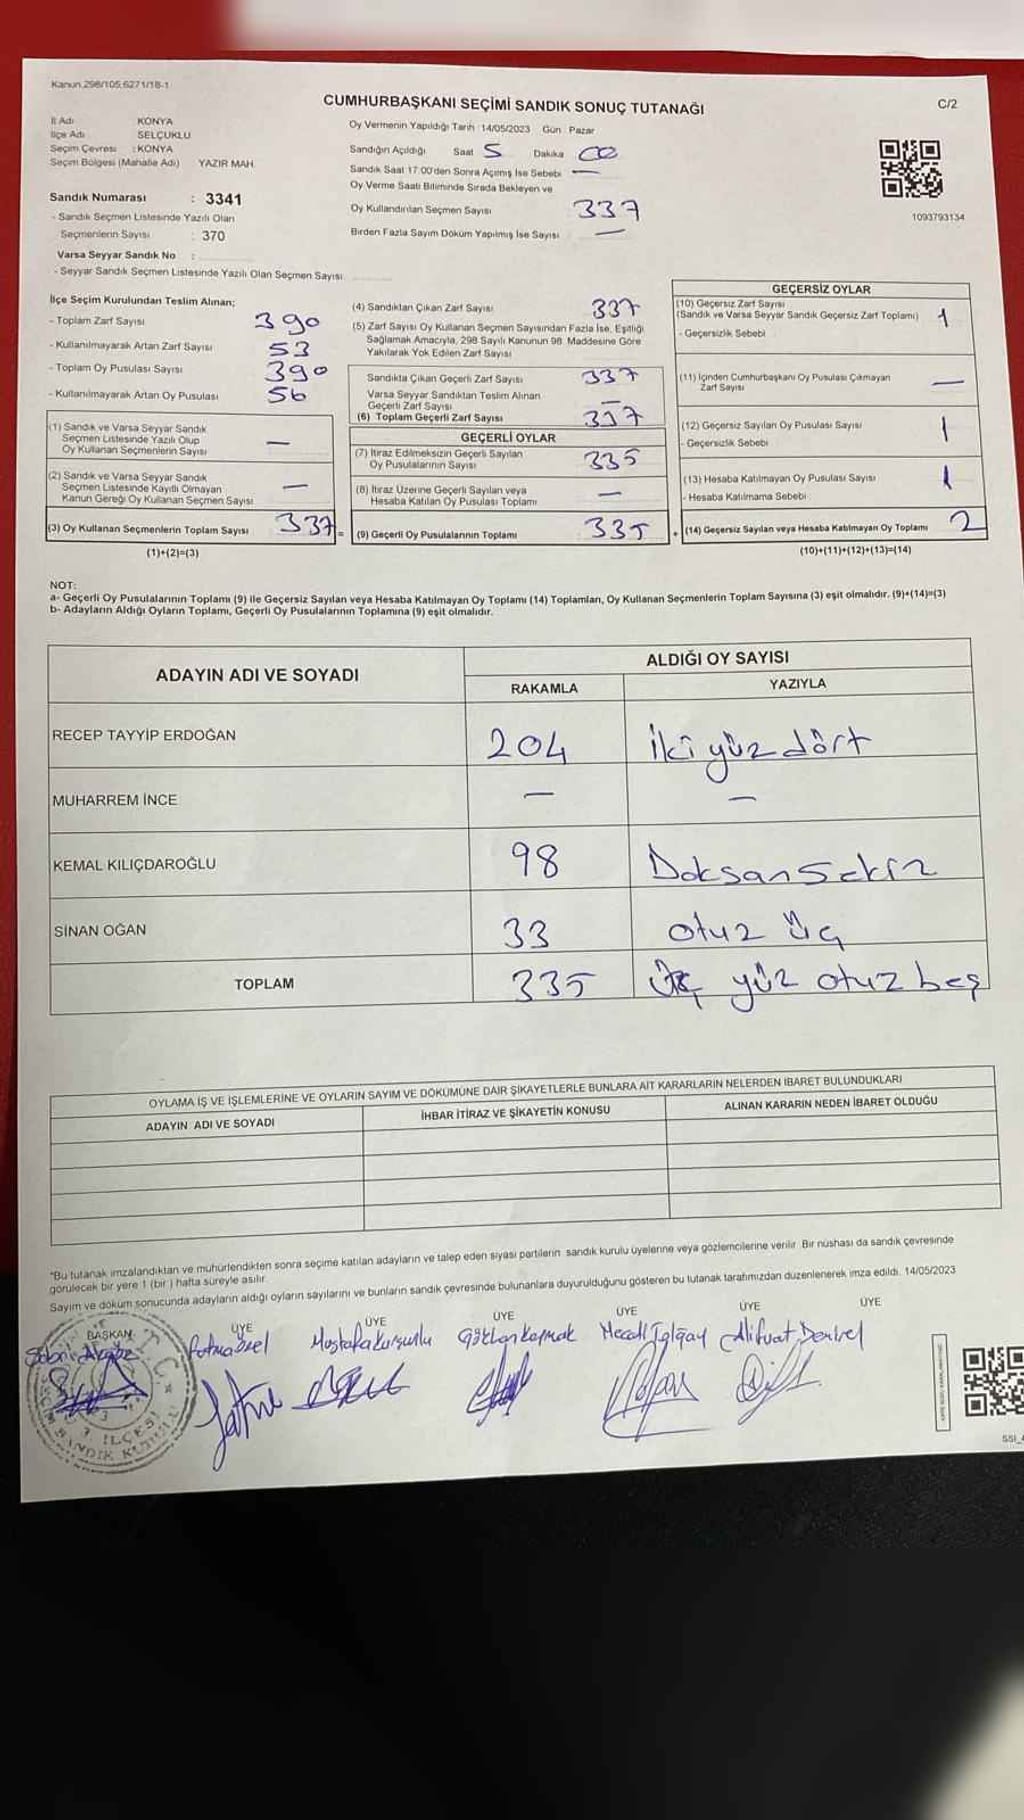 Kanun 298/105,6271/18-1
CUMHURBAŞKANI SEÇİMİ SANDIK SONUÇ TUTANAĞI
C/2
İl Adı KONYA
İlçe Adı SELÇUKLU
Seçim Çevresi : KONYA
Seçim Bölgesi (Mahalle Adı) YAZIR MAH.
Sandık Numarası : 3341
- Sandık Seçmen Listesinde Yazılı Olan
Seçmenlerin Sayısı : 370
Varsa Seyyar Sandık No :
- Seyyar Sandık Seçmen Listesinde Yazılı Olan Seçmen Sayısı
Oy Vermenin Yapıldığı Tarih : 14/05/2023 Gün : Pazar
Sandığın Açıldığı Saat 5 Dakika 00
Sandık Saat 17:00'den Sonra Açılmış İse Sebebi —
Oy Verme Saati Bitiminde Sırada Bekleyen ve
Oy Kullandırılan Seçmen Sayısı 337
Birden Fazla Sayım Döküm Yapılmış İse Sayısı —
1093793134
İlçe Seçim Kurulundan Teslim Alınan;
- Toplam Zarf Sayısı 390
- Kullanılmayarak Artan Zarf Sayısı 53
- Toplam Oy Pusulası Sayısı 390
- Kullanılmayarak Artan Oy Pusulası 56
(1) Sandık ve Varsa Seyyar Sandık
Seçmen Listesinde Yazılı Olup
Oy Kullanan Seçmenlerin Sayısı —
(2) Sandık ve Varsa Seyyar Sandık
Seçmen Listesinde Kayıtlı Olmayan
Kanun Gereği Oy Kullanan Seçmen Sayısı —
(3) Oy Kullanan Seçmenlerin Toplam Sayısı 337 =
(1)+(2)=(3)
(4) Sandıktan Çıkan Zarf Sayısı 337
(5) Zarf Sayısı Oy Kullanan Seçmen Sayısından Fazla İse, Eşitliği
Sağlamak Amacıyla, 298 Sayılı Kanunun 98. Maddesine Göre
Yakılarak Yok Edilen Zarf Sayısı
Sandıkta Çıkan Geçerli Zarf Sayısı 337
Varsa Seyyar Sandıktan Teslim Alınan
Geçerli Zarf Sayısı —
(6) Toplam Geçerli Zarf Sayısı 337
GEÇERLİ OYLAR
(7) İtiraz Edilmeksizin Geçerli Sayılan
Oy Pusulalarının Sayısı 335
(8) İtiraz Üzerine Geçerli Sayılan veya
Hesaba Katılan Oy Pusulası Toplamı —
(9) Geçerli Oy Pusulalarının Toplamı 335 +
GEÇERSİZ OYLAR
(10) Geçersiz Zarf Sayısı
(Sandık ve Varsa Seyyar Sandık Geçersiz Zarf Toplamı) 1
- Geçersizlik Sebebi
(11) İçinden Cumhurbaşkanı Oy Pusulası Çıkmayan
Zarf Sayısı —
(12) Geçersiz Sayılan Oy Pusulası Sayısı 1
- Geçersizlik Sebebi
(13) Hesaba Katılmayan Oy Pusulası Sayısı 1
- Hesaba Katılmama Sebebi
(14) Geçersiz Sayılan veya Hesaba Katılmayan Oy Toplamı 2
(10)+(11)+(12)+(13)=(14)
NOT:
a- Geçerli Oy Pusulalarının Toplamı (9) ile Geçersiz Sayılan veya Hesaba Katılmayan Oy Toplamı (14) Toplamları, Oy Kullanan Seçmenlerin Toplam Sayısına (3) eşit olmalıdır. (9)+(14)=(3)
b- Adayların Aldığı Oyların Toplamı, Geçerli Oy Pusulalarının Toplamına (9) eşit olmalıdır.
ADAYIN ADI VE SOYADI ALDIĞI OY SAYISI
RAKAMLA YAZIYLA
RECEP TAYYİP ERDOĞAN 204 İki yüz dört
MUHARREM İNCE — —
KEMAL KILIÇDAROĞLU 98 Doksan Sekiz
SİNAN OĞAN 33 otuz üç
TOPLAM 335 Üç yüz otuz beş
OYLAMA İŞ VE İŞLEMLERİNE VE OYLARIN SAYIM VE DÖKÜMÜNE DAİR ŞİKAYETLERLE BUNLARA AİT KARARLARIN NELERDEN İBARET BULUNDUKLARI
ADAYIN ADI VE SOYADI İHBAR İTİRAZ VE ŞİKAYETİN KONUSU ALINAN KARARIN NEDEN İBARET OLDUĞU
*Bu tutanak imzalandıktan ve mühürlendikten sonra seçime katılan adayların ve talep eden siyasi partilerin sandık kurulu üyelerine veya gözlemcilerine verilir. Bir nüshası da sandık çevresinde
görülecek bir yere 1 (bir) hafta süreyle asılır.
Sayım ve döküm sonucunda adayların aldığı oyların sayılarını ve bunların sandık çevresinde bulunanlara duyurulduğunu gösteren bu tutanak tarafımızdan düzenlenerek imza edildi. 14/05/2023
BAŞKAN ÜYE ÜYE ÜYE ÜYE ÜYE ÜYE
Fatma Özel Mustafa Kurşunlu Gökhan Kaymak Alifuat Demirel
T.C.
İLÇESİ
SANDIK KURULU